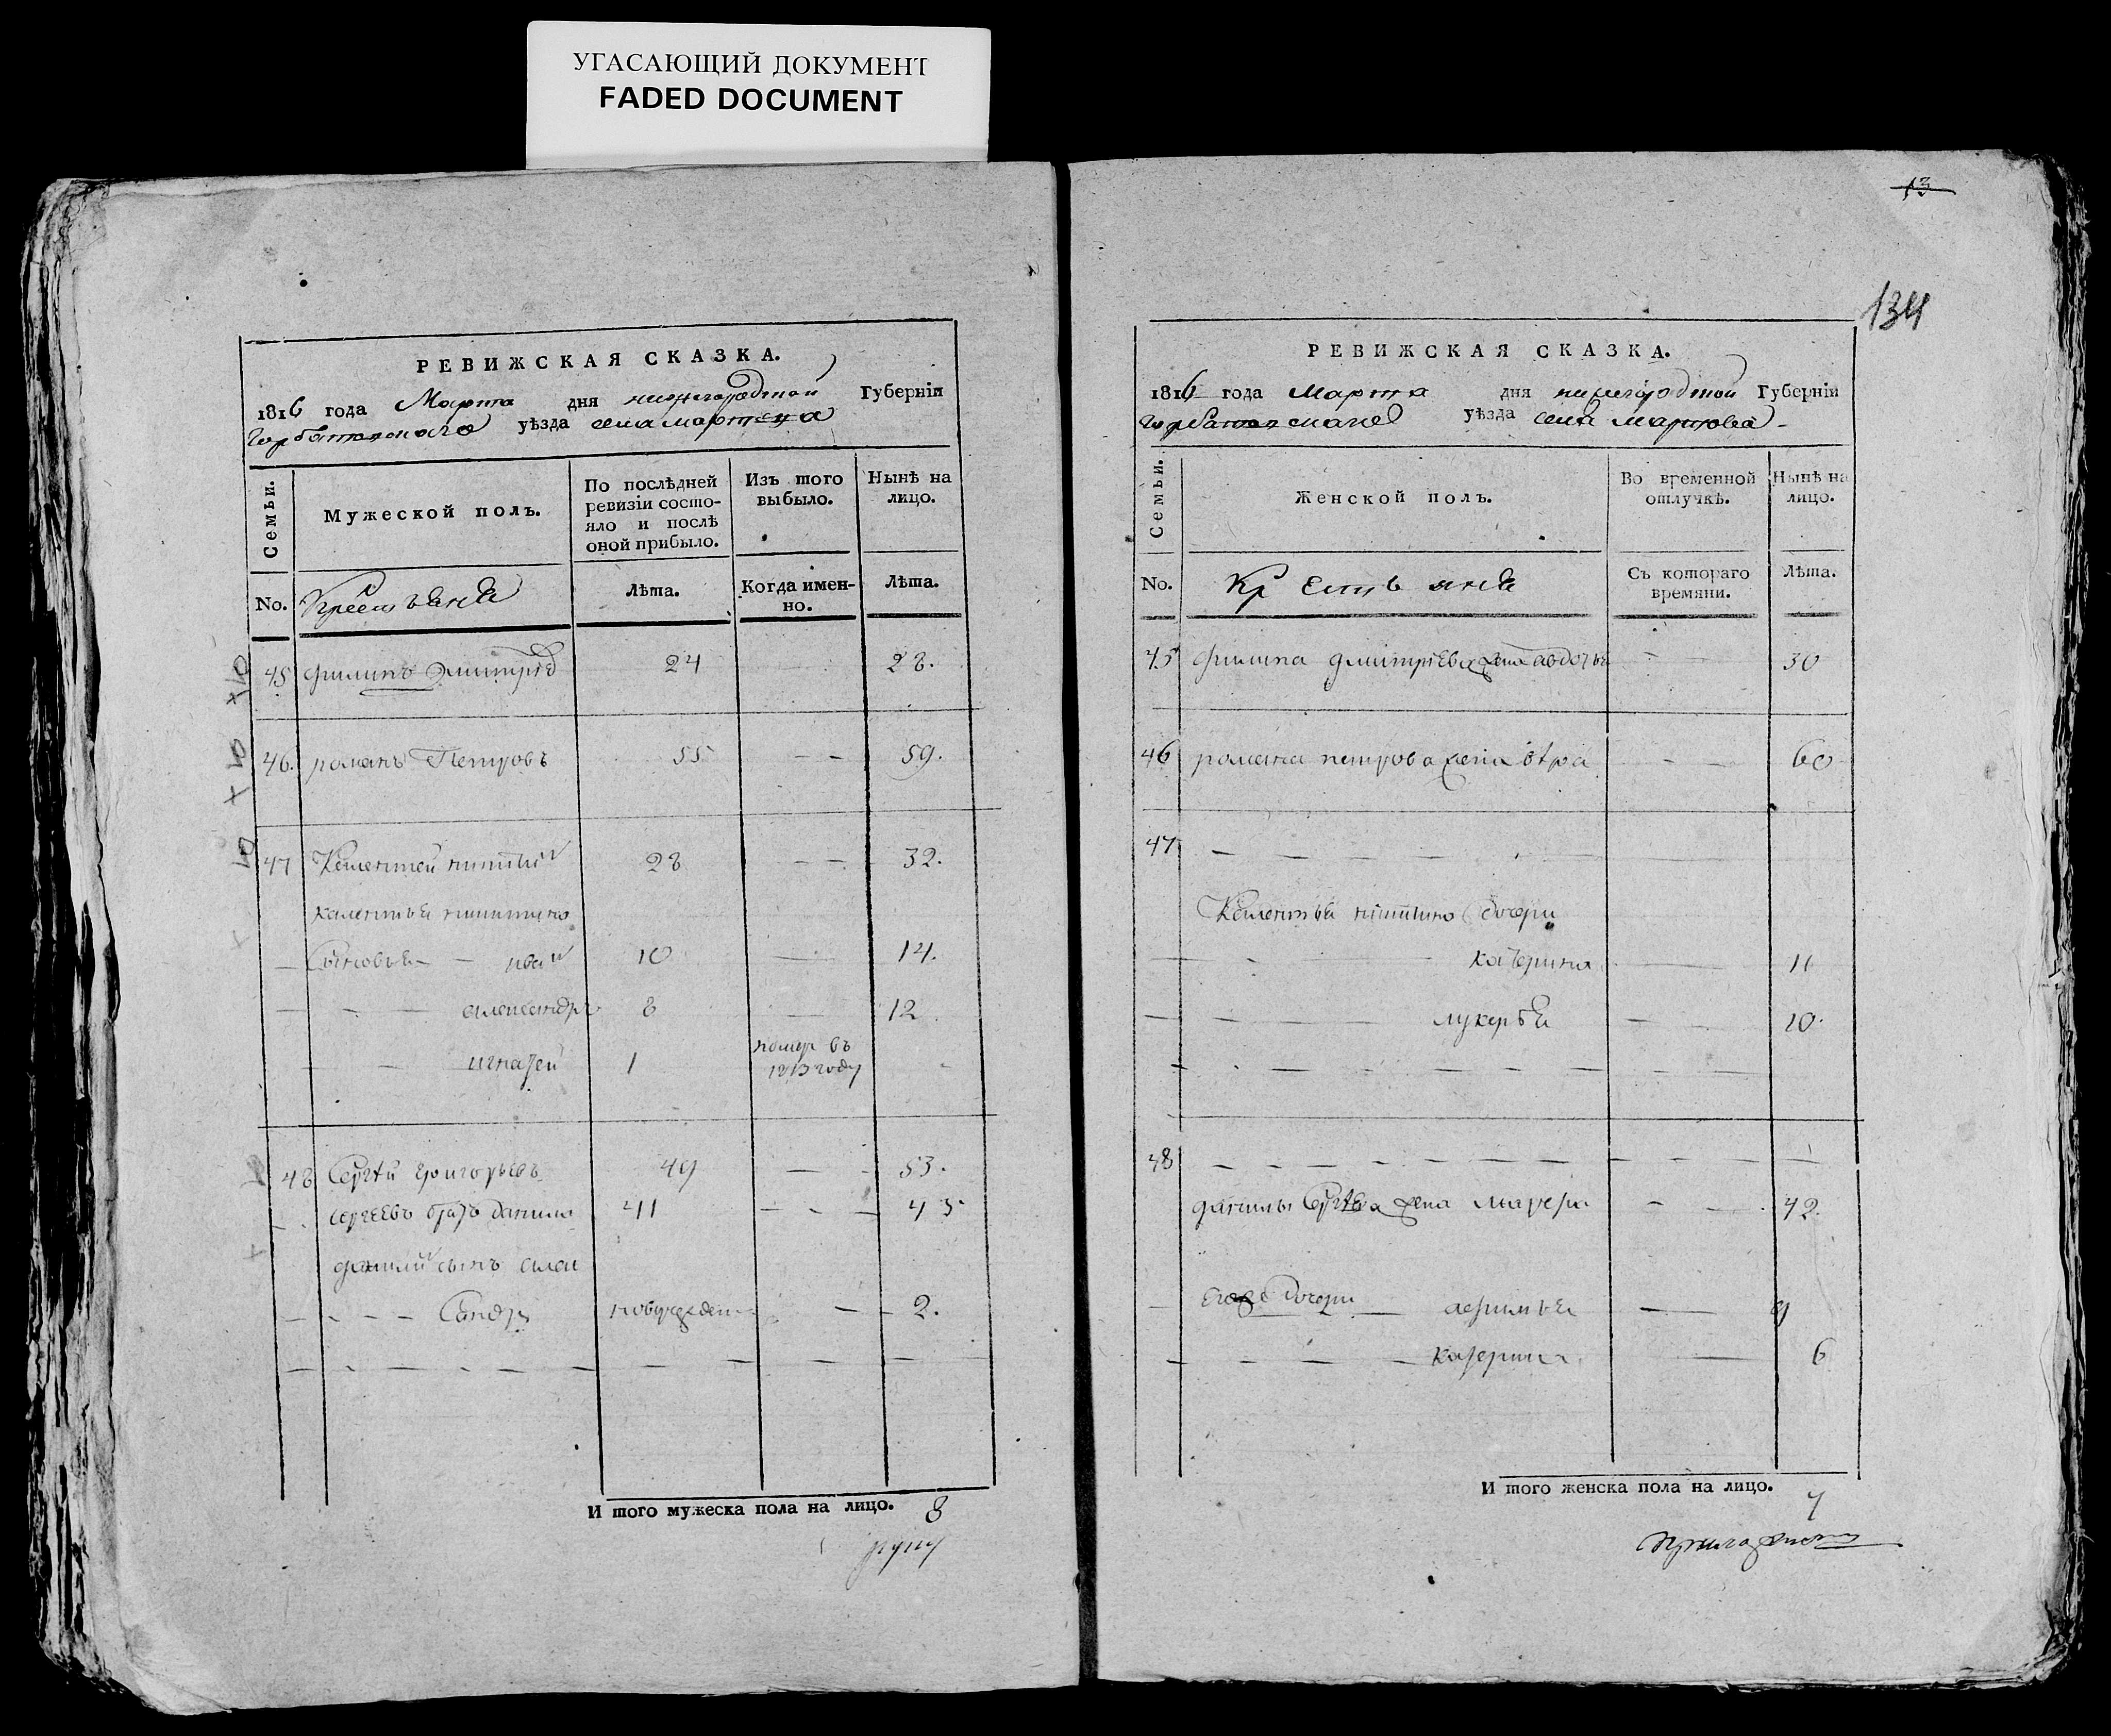 УГАСАЮЩИЙ ДОКУМЕНТ
FADED DOCUMENT
РЕВИЖСКАЯ СКАЗКА.
1816 года Марта дня нижегородской Губерніи
Горбатовскаго уѣзда села мартова
Семьи. Мужеской полъ. По послѣдней ревизіи состояло и послѣ оной прибыло. Изъ того выбыло. Нынѣ на лицо.
No. Крестьяня Лѣта. Когда именно. Лѣта.
45 филипъ дмитрiев 24 28.
46. романъ Петровъ 55 — — 59.
47 Келентей никитин 28 — — 32.
калентья никитина
— Сыновья — — иван 10 — 14.
— — — александръ 8 — 12
— — игнатей 1 помер въ 1813 году
48 Сергѣй григорьевъ 49 — - 53.
сергеевъ братъ данила 41 — - — 45.
данилы сынъ алек
— - - — Сандр новорожден — 2.
И того мужеска пола на лицо. 8
13
134
РЕВИЖСКАЯ СКАЗКА.
1816 года Марта дня нижегородской Губерніи
Горбатовскаго уѣзда села мартова
Семьи. Женской полъ. Во временной отлучкѣ. Нынѣ на лицо.
No. Крестьяня Съ котораго времяни. Лѣта.
45 филипа дмитрiева жена авдотья — - 30
46 романа петрова жена — - — 60
47 — — — —
Келентья никитина дочери
катерина — 11
лукерья — 10.
48 — — — — — —
данилы жена — - — 42.
его дочери — — 9
— — — — катерина — 6
И того женска пола на лицо. 7